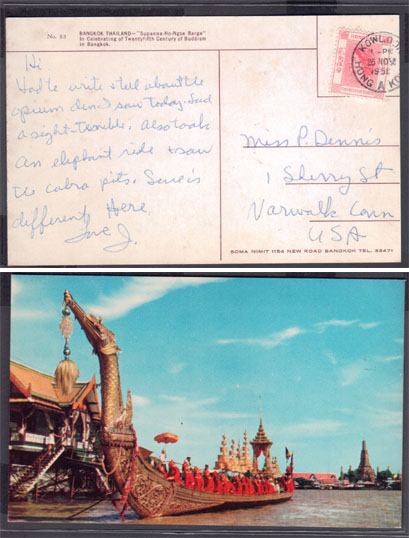 No. 83 BANGKOK THAILAND—"Supanna-Ho-Ngse Barge"
In Celebrating of Twentyfifth Century of Buddism
in Bangkok.
Hi
Had to write & tell about the
opium den I saw today. Sad
a sight-terrible. Also took
an elephant ride & saw
the cobra pits. Sure is
different here.
Love J.
KOWLOON
-PM
26 NOV
195
HONG KONG
Miss P. Dennis
1 Sherry St
Norwalk Conn
USA
SOMA NIMIT 1154 NEW ROAD BANGKOK TEL. 33471